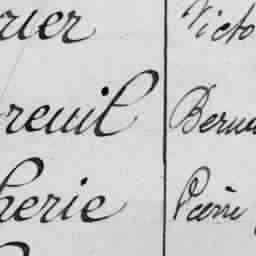 rier Victo
reuil Bernu
herie Pierre